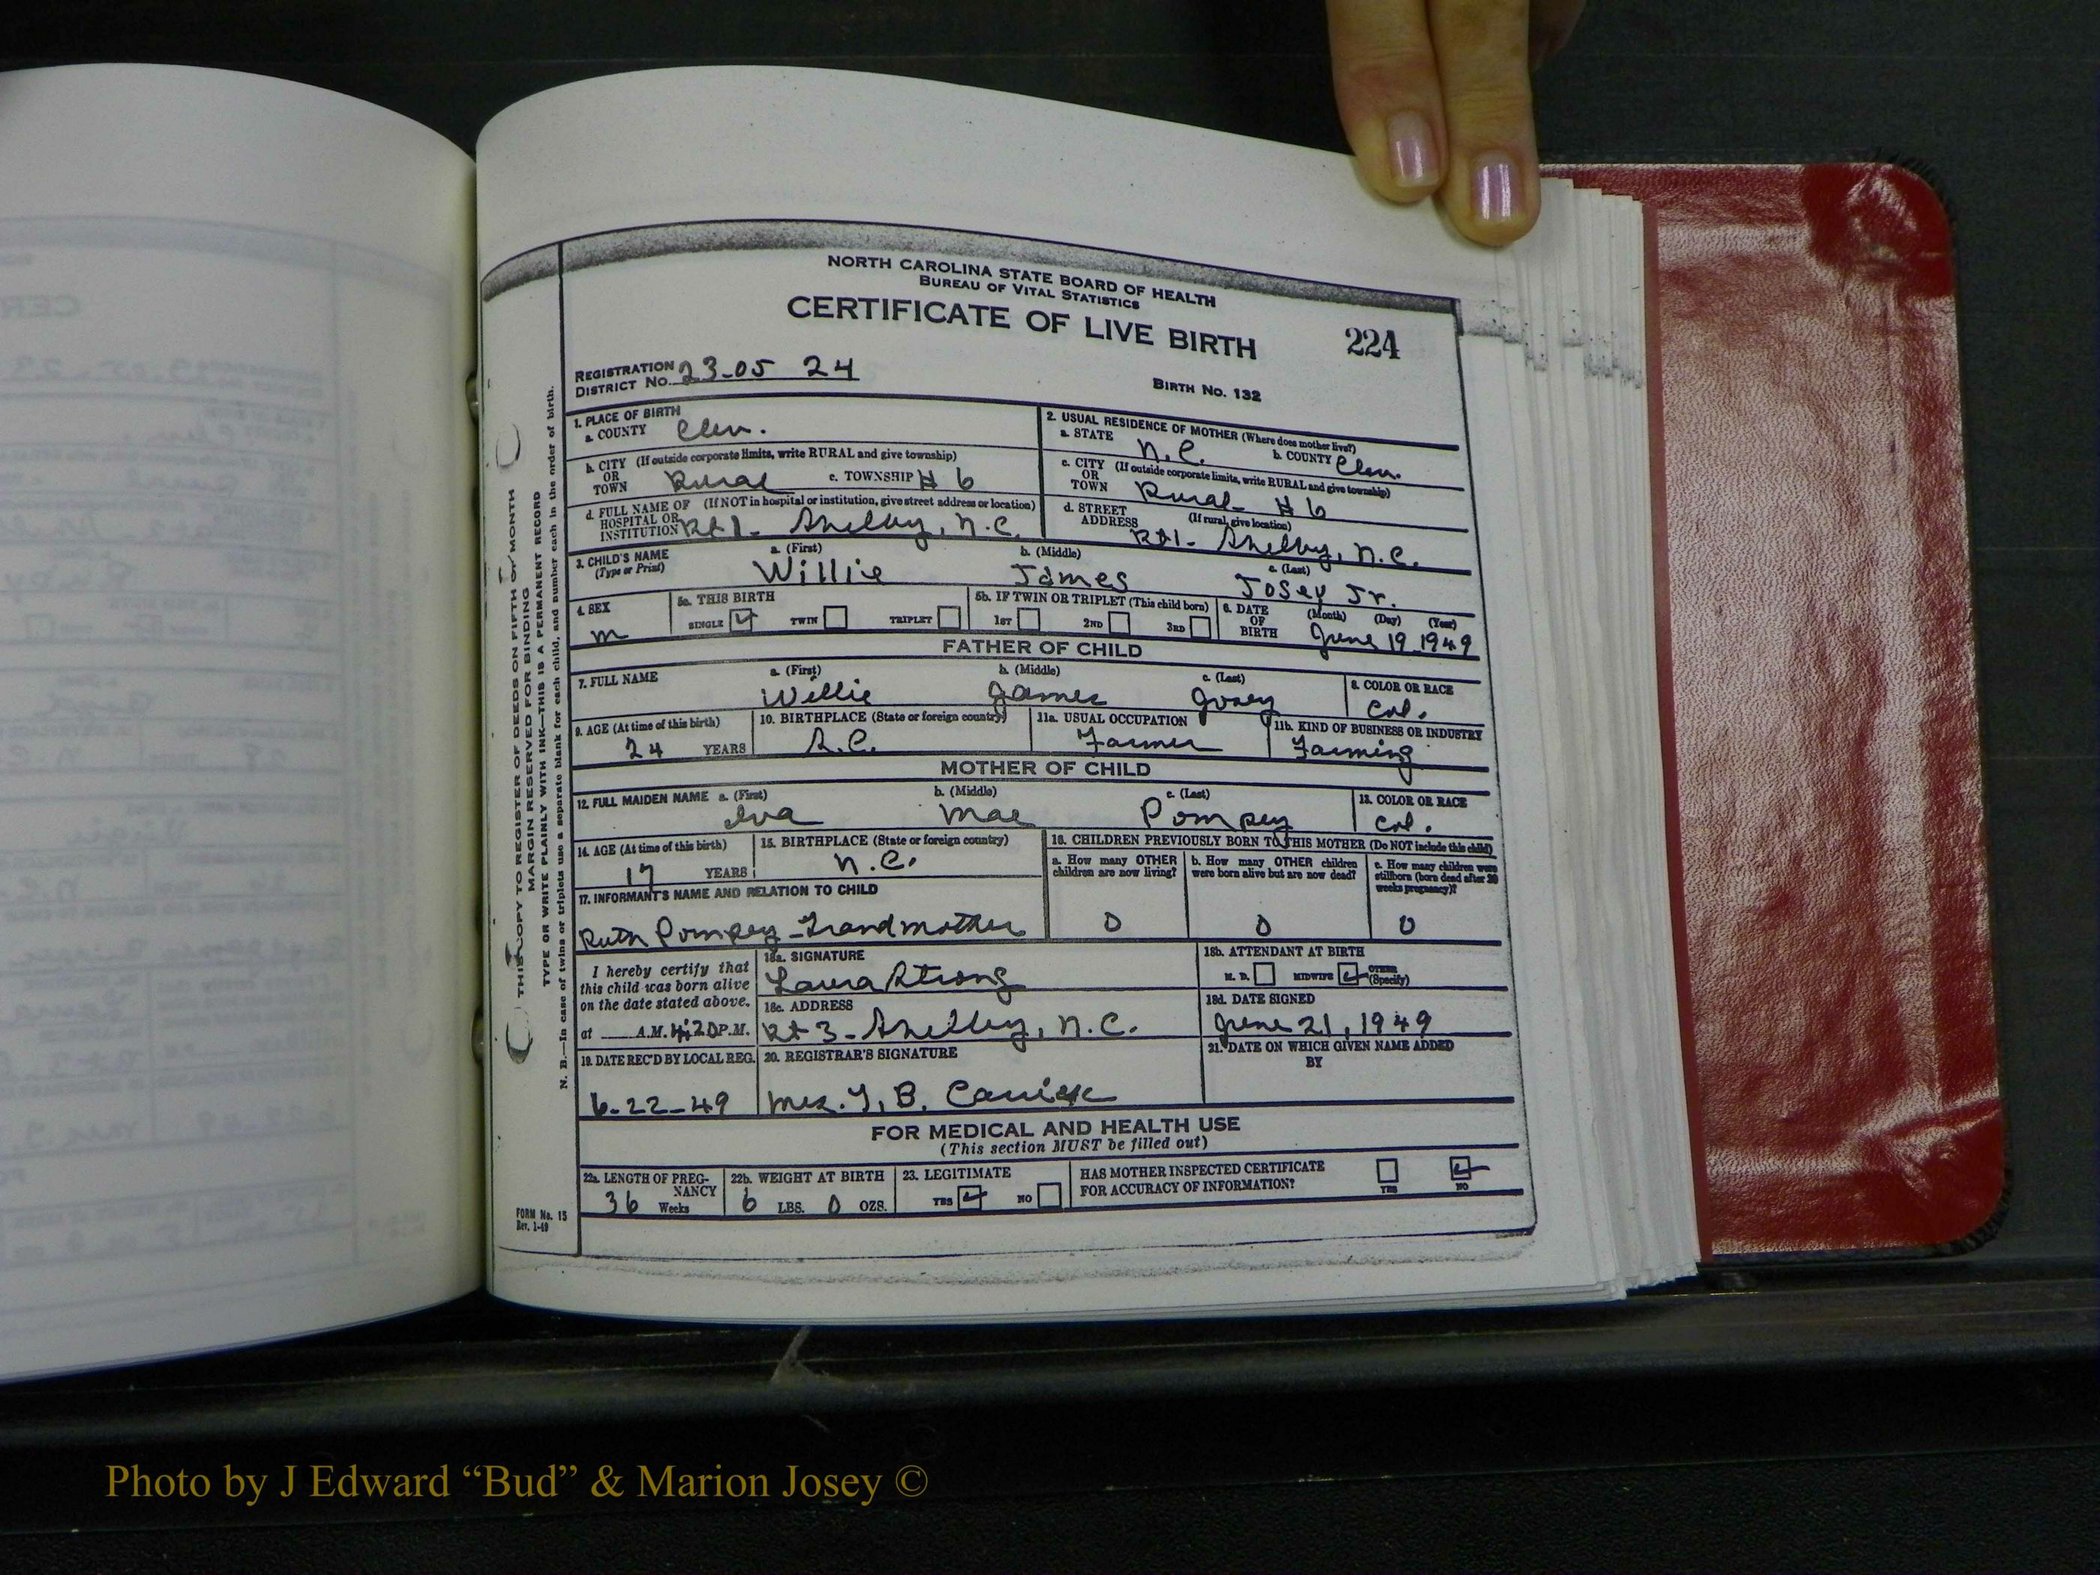 NORTH CAROLINA STATE BOARD OF HEALTH
BUREAU OF VITAL STATISTICS
CERTIFICATE OF LIVE BIRTH 224
REGISTRATION
DISTRICT No. 23-05 24
BIRTH No. 132
1. PLACE OF BIRTH
a. COUNTY Clev.
b. CITY (If outside corporate limits, write RURAL and give township)
OR
TOWN Rural c. TOWNSHIP # 6
d. FULL NAME OF (If NOT in hospital or institution, give street address or location)
HOSPITAL OR
INSTITUTION Rt 1- Shelby, N.C.
2. USUAL RESIDENCE OF MOTHER (Where does mother live?)
a. STATE N.C. b. COUNTY Clev.
c. CITY (If outside corporate limits, write RURAL and give township)
OR
TOWN Rural- # 6
d. STREET (If rural, give location)
ADDRESS Rt 1- Shelby, N.C.
3. CHILD'S NAME a. (First) b. (Middle) c. (Last)
(Type or Print) Willie James Josey Jr.
4. SEX
m
5a. THIS BIRTH
SINGLE TWIN TRIPLET
5b. IF TWIN OR TRIPLET (This child born)
1ST 2ND 3RD
6. DATE (Month) (Day) (Year)
OF
BIRTH June 19 1949
FATHER OF CHILD
7. FULL NAME a. (First) b. (Middle) c. (Last)
Willie James Josey
8. COLOR OR RACE
Col.
9. AGE (At time of this birth)
24 YEARS
10. BIRTHPLACE (State or foreign country)
S.C.
11a. USUAL OCCUPATION
Farmer
11b. KIND OF BUSINESS OR INDUSTRY
Farming
MOTHER OF CHILD
12. FULL MAIDEN NAME a. (First) b. (Middle) c. (Last)
Iva Mae Pompey
13. COLOR OR RACE
Col.
14. AGE (At time of this birth)
17 YEARS
15. BIRTHPLACE (State or foreign country)
N.C.
16. CHILDREN PREVIOUSLY BORN TO THIS MOTHER (Do NOT include this child)
a. How many OTHER
children are now living?
0
b. How many OTHER children
were born alive but are now dead?
0
c. How many children were
stillborn (born dead after 20
weeks pregnancy)?
0
17. INFORMANT'S NAME AND RELATION TO CHILD
Ruth Pompey - Grandmother
I hereby certify that
this child was born alive
on the date stated above.
at A.M. 4:20 P.M.
18a. SIGNATURE
Laura Strong
18b. ATTENDANT AT BIRTH
M. D. MIDWIFE OTHER
(Specify)
18c. ADDRESS
Rt 3 - Shelby, N.C.
18d. DATE SIGNED
June 21, 1949
19. DATE REC'D BY LOCAL REG.
6-22-49
20. REGISTRAR'S SIGNATURE
Mrs. B.
21. DATE ON WHICH GIVEN NAME ADDED
BY
FOR MEDICAL AND HEALTH USE
(This section MUST be filled out)
22a. LENGTH OF PREG-
NANCY
36 Weeks
22b. WEIGHT AT BIRTH
6 LBS. 0 OZS.
23. LEGITIMATE
YES NO
HAS MOTHER INSPECTED CERTIFICATE
FOR ACCURACY OF INFORMATION?
YES NO
FORM No. 15
Rev. 1-49
THIS COPY TO REGISTER OF DEEDS ON FIFTH OF MONTH
MARGIN RESERVED FOR BINDING
TYPE OR WRITE PLAINLY WITH INK—THIS IS A PERMANENT RECORD
N. B.—In case of twins or triplets use a separate blank for each child, and number each in the order of birth.
Photo by J Edward “Bud” & Marion Josey ©